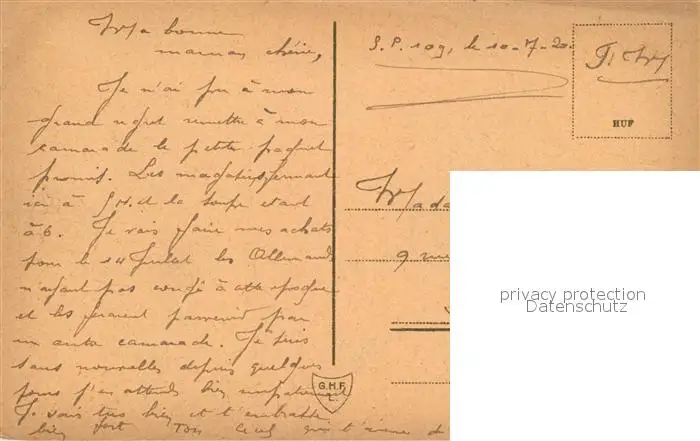 Ma bonne
maman chérie,
Je n'ai pu à mon
grand regret remettre à mon
camarade le petit paquet
promis. Les magasins fermant
ici à 5 H. et la soupe étant
à 6. Je vais faire mes achats
pour le 14 Juillet les Allemands
n'ayant pas congé à cette époque
et les ferai parvenir par
un autre camarade. Je suis
sans nouvelles depuis quelques
jours j'en attends bien impatiemment
Je vais très bien et t'embrasse
bien fort Ton qui t'aime
S.P. 109, le 10-7-20.
F. M
HUF
9 rue
G.H.F.
L.
privacy protection
Datenschutz